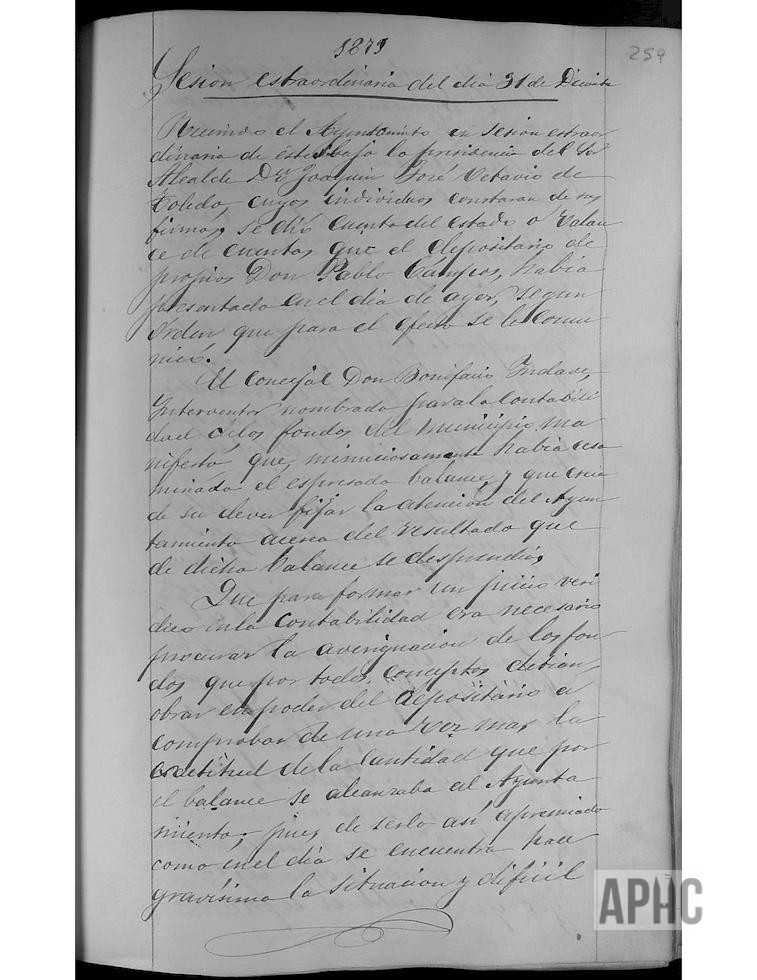 1871
259
Sesion estraordinaria del dia 31 de Diciembre
Reunido el Ayuntamiento en sesion estraor
dinaria de este bajo la presidencia del Sor
Alcalde Dn Joaquin José Octavio de
Toledo, cuyos individuos constaran de sus
firmas, se dió cuenta del estado o Valan
ce de cuentas que el depositario de
propios Don Pablo Campos, habia
presentado en el dia de ayer, segun
órden que para el efecto se le comu
nicó.
El Concejal Don Bonifacio
Interventor nombrado para la Contabili
dad de los fondos del Municipio ma
nifestó que, minuciosamente habia esa
minado el espresado balance, y que creia
de su dever fijar la atencion del Ayun
tamiento acerca del resultado que
de dicho Valance se desprendia,
Que para formar un juicio veri
dico en la Contabilidad era necesario
procurar la averiguacion de los fon
dos que por todos conceptos debian
obrar en poder del depositario a
comprobar de una vez mas la
esactitud de la Cantidad que por
el balance se alcanzaba al Ayunta
miento; pues de serlo así apremiado
como en el dia se encuentra hace
gravísima la situacion y dificil
APHC